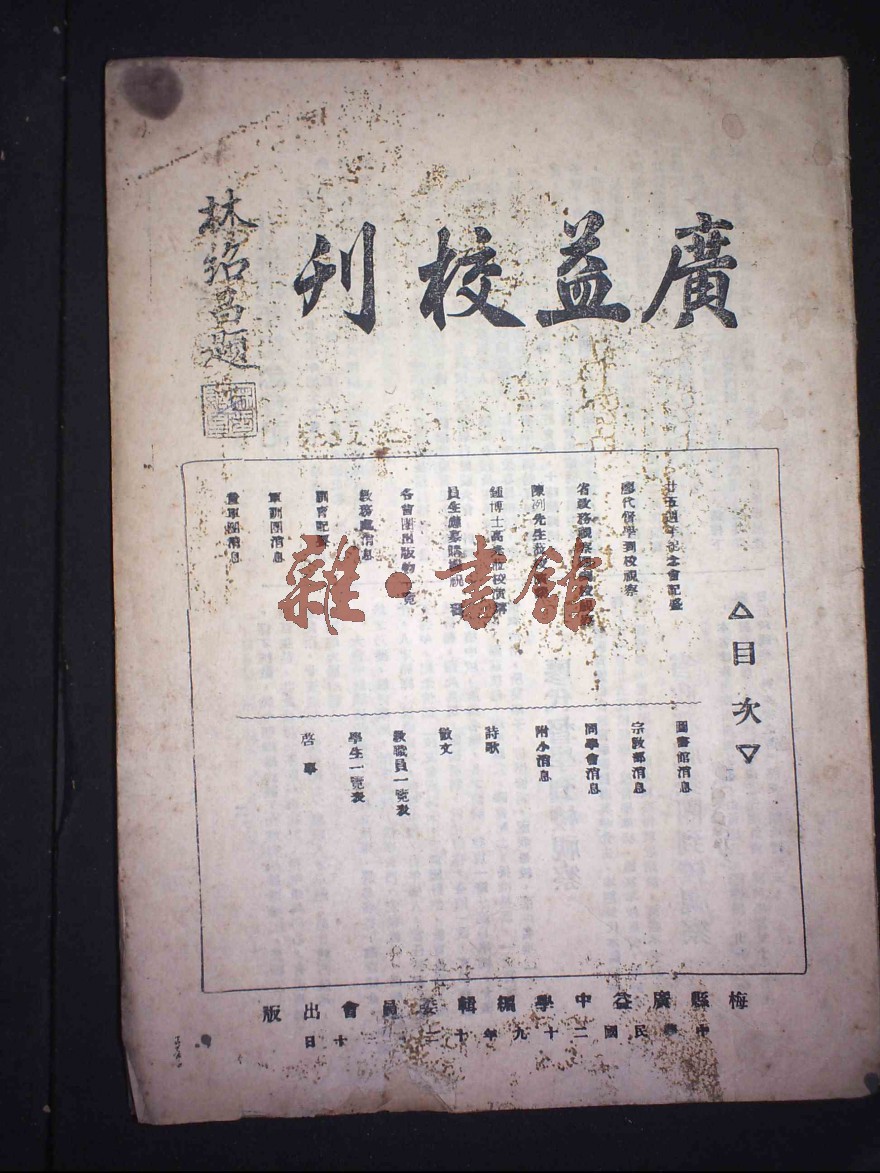 廣益校刊
林紹昌題
△目次▽
廿五週年紀念會記盛
廖代督學到校視察
省政務視察團到校視察
陳洌先生蒞校演講
鍾博士高光蒞校演講
員生
各會團出版物一覽
教務處消息
訓育紀要
軍訓團消息
童軍團消息
圖書館消息
宗教部消息
同學會消息
附小消息
詩歌
散文
教職員一覽表
學生一覽表
啓事
梅縣廣益中學編輯委員會出版
中華民國二十九年十二月三十日
雜·書館